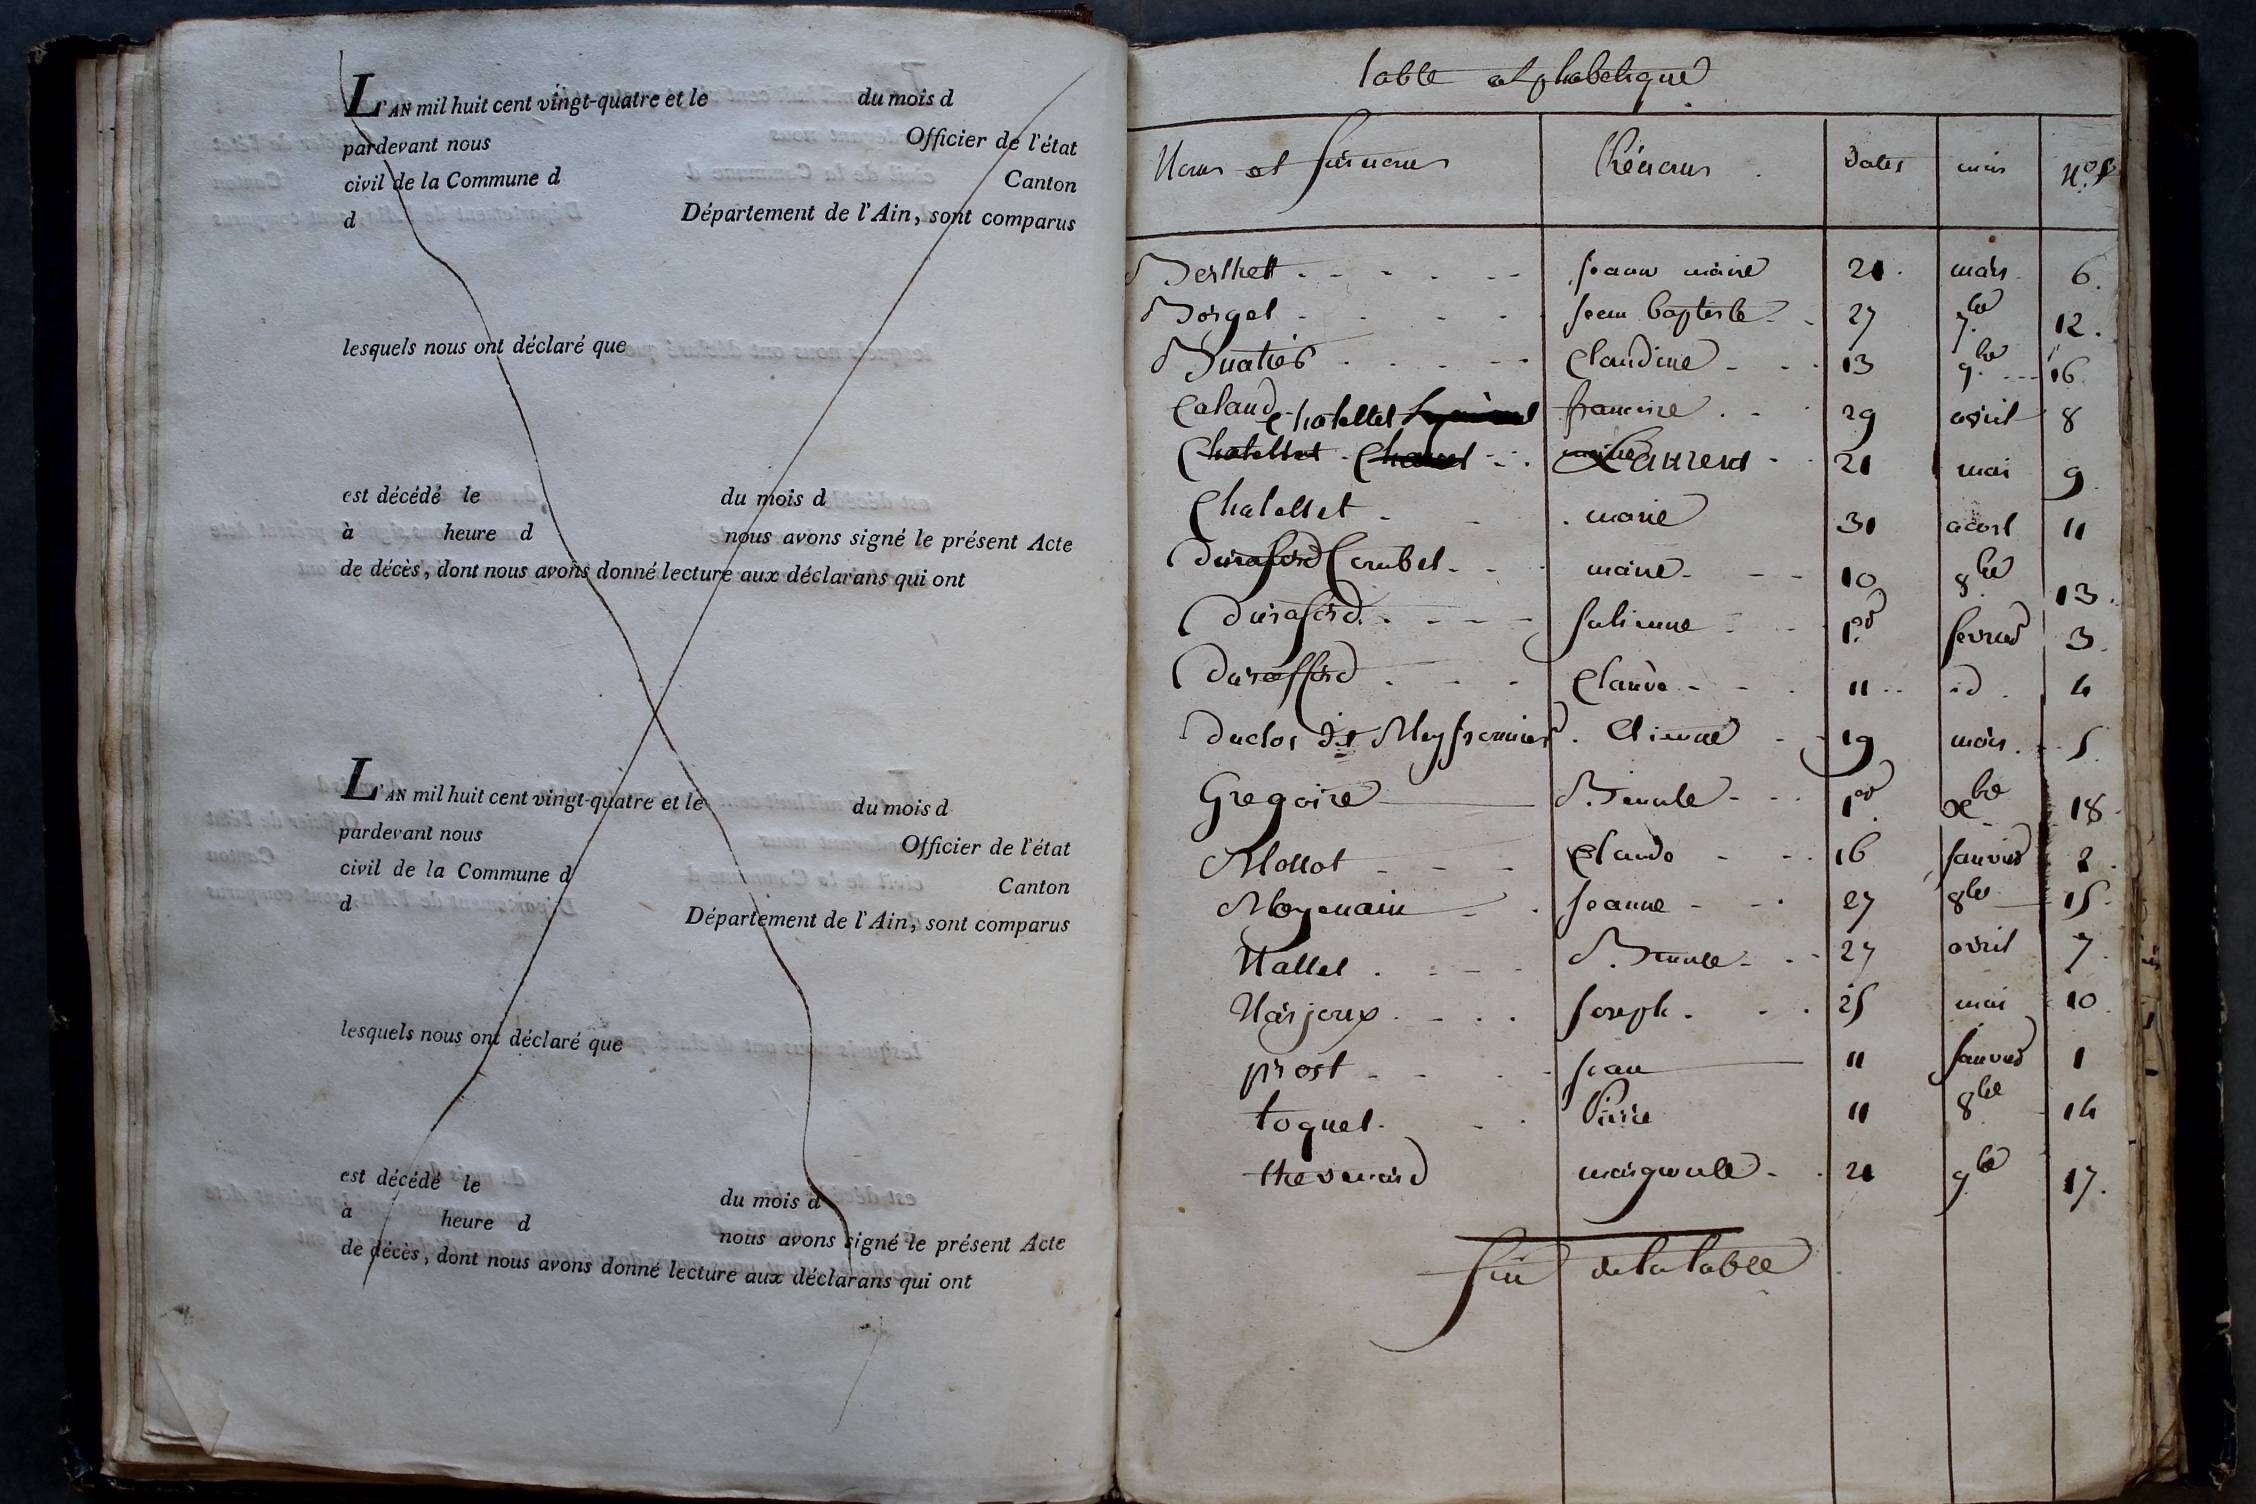 L'AN mil huit cent vingt-quatre et le du mois d
pardevant nous Officier de l'état
civil de la Commune d Canton
d Département de l'Ain, sont comparus
lesquels nous ont déclaré que
est décédé le du mois d
à heure d nous avons signé le présent Acte
de décès, dont nous avons donné lecture aux déclarans qui ont
L'AN mil huit cent vingt-quatre et le du mois d
pardevant nous Officier de l'état
civil de la Commune d Canton
d Département de l'Ain, sont comparus
lesquels nous ont déclaré que
est décédé le du mois d
à heure d nous avons signé le présent Acte
de décès, dont nous avons donné lecture aux déclarans qui ont
table alphabetique
Noms et surnoms Prénoms Dates mois Nos
Berthet jeanne marie 21 mars 6
Borget jean baptiste 27 7bre 12
Buatier Claudine 13 9bre 16
Caland francoise 29 avril 8
Chatellet Laurent 21 mai 9
Chatellet marie 31 aout 11
Combet marie 10 8bre 13
duraford julienne 1er fevrier 3
durafford Claude 11 id 4
duclos dit Meyfronnier etienne 19 mars 5
Gregoire Benoite 1er Xbre 18
Mollot Claude 16 janvier 2
Moyemain jeanne 27 8bre 15
Nallet Benoite 27 avril 7
Narjoux joseph 25 mai 10
prost jean 11 janvier 1
toquet Pierre 11 8bre 14
thevenard marguerite 21 9bre 17
fin de la table